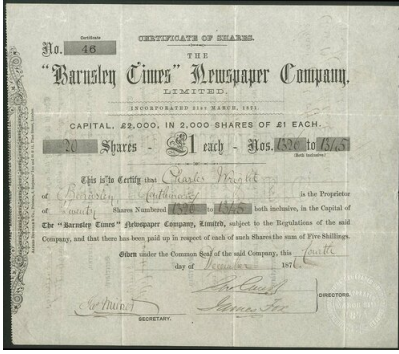 Certificate
CERTIFICATE OF SHARES.
No. 46
THE
"Barnsley Times" Newspaper Company,
LIMITED.
INCORPORATED 21ST MARCH, 1871.
CAPITAL, £2,000, IN 2,000 SHARES OF £1 EACH.
20 Shares - £1 each - Nos. 1326 to 1345
(Both inclusive)
This is to Certify that Charles Wright
of Barnsley is the Proprietor
of Twenty Shares Numbered 1326 to 1345 both inclusive, in the Capital of
The "Barnsley Times" Newspaper Company, Limited, subject to the Regulations of the said
Company, and that there has been paid up in respect of each of such Shares the sum of Five Shillings.
Given under the Common Seal of the said Company, this fourth
day of December 187
James Fox
DIRECTORS.
SECRETARY.